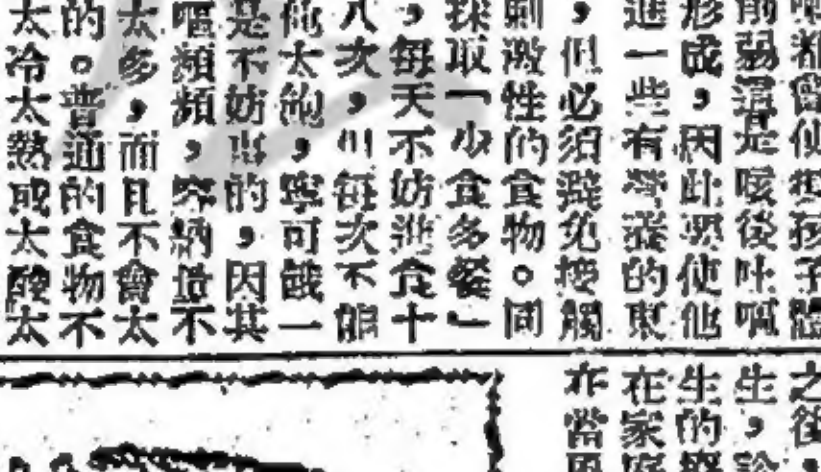 都會使把孩子體
削弱這是咳後吐嘔
形成，因此要使他
進一些有營養的東
，但必須避免接觸
刺激性的食物。同
採取「少食多餐」
，每天不妨進食十
八次，但每次不能
他太飽，寧可餓一
是不妨事的，因其
嘔頻頻，容納量不
太多，而且不會太
的。普通的食物不
太冷太熱或太酸太
之後，
生，
生的
在家
在當